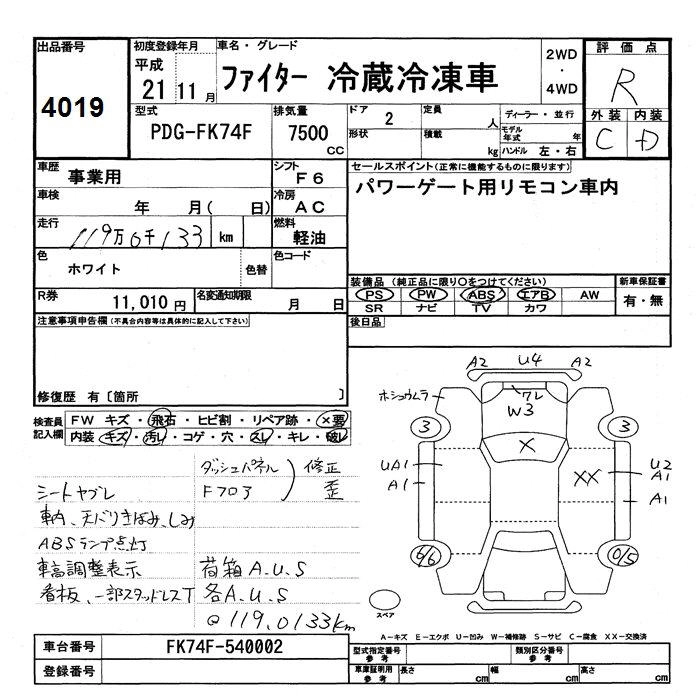 出品番号
4019
初度登録年月
平成
21 11 月
車名・グレード
ファイター 冷蔵冷凍車
2WD
・
4WD
評価点
R
外装 内装
C D
型式
PDG-FK74F
排気量
7500
CC
ドア
2
形状
定員
人
積載
kg
ディーラー・並行
モデル年式 年
ハンドル 左・右
車歴
事業用
シフト
F6
車検
年 月( 日)
冷房
AC
走行
119万0千133 km
燃料
軽油
色
ホワイト
色替
色コード
R券
11,010 円
名変通知期限
月 日
セールスポイント(正常に機能するものに限ります)
パワーゲート用リモコン車内
装備品 (純正品に限り○をつけてください)
PS PW ABS エアB AW
SR ナビ TV カワ
新車保証書
有・無
後日品
注意事項申告欄(不具合内容等は具体的に記入して下さい)
修復歴 有〔箇所 〕
検査員記入欄
FW キズ・飛石・ヒビ割・リペア跡・×要
内装 キズ・汚レ・コゲ・穴・スレ・キレ・破レ
ダッシュパネル
Fフロア
修正
歪
シートヤブレ
車内、天バリきばみ、しみ
ABSランプ点灯
車高調整表示
荷箱A.U.S
看板、一部スタッドレスT
各A.U.S
@119,0133km
A2 U4 A2
ホシュウムラ
ワレ
W3
3 3
X
UA1
A1
XX
U2
A1
A1
6/6
0/5
スペア
A-キズ E-エクボ U-凹み W-補修跡 S-サビ C-腐食 XX-交換済
車台番号
FK74F-540002
登録番号
型式指定番号
参考
類別区分番号
参考
車庫証明用
参考
長さ cm
幅 cm
高さ cm